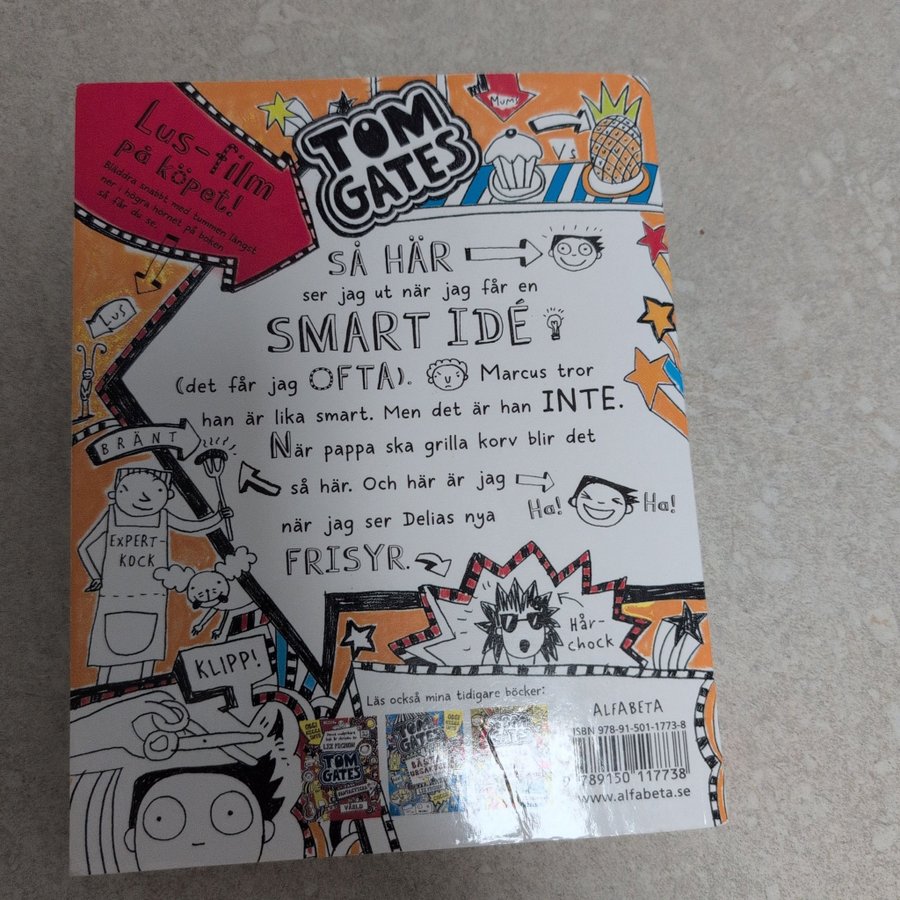 Lus-film
på köpet!
Bläddra snabbt med tummen längst
ner i högra hörnet på boken
så får du se.
TOM
GATES
Mums
VS
SÅ HÄR
ser jag ut när jag får en
SMART IDÉ
(det får jag OFTA). Marcus tror
han är lika smart. Men det är han INTE.
När pappa ska grilla korv blir det
så här. Och här är jag
Ha! Ha!
när jag ser Delias nya
FRISYR.
LUS
BRÄNT
EXPERT-
KOCK
KLIPP!
Hår-
chock
Läs också mina tidigare böcker:
LIZ PICHON
TOM
GATES
VÄRLD
TOM
GATES
ALFABETA
ISBN 978-91-501-1773-8
9789150117738
www.alfabeta.se